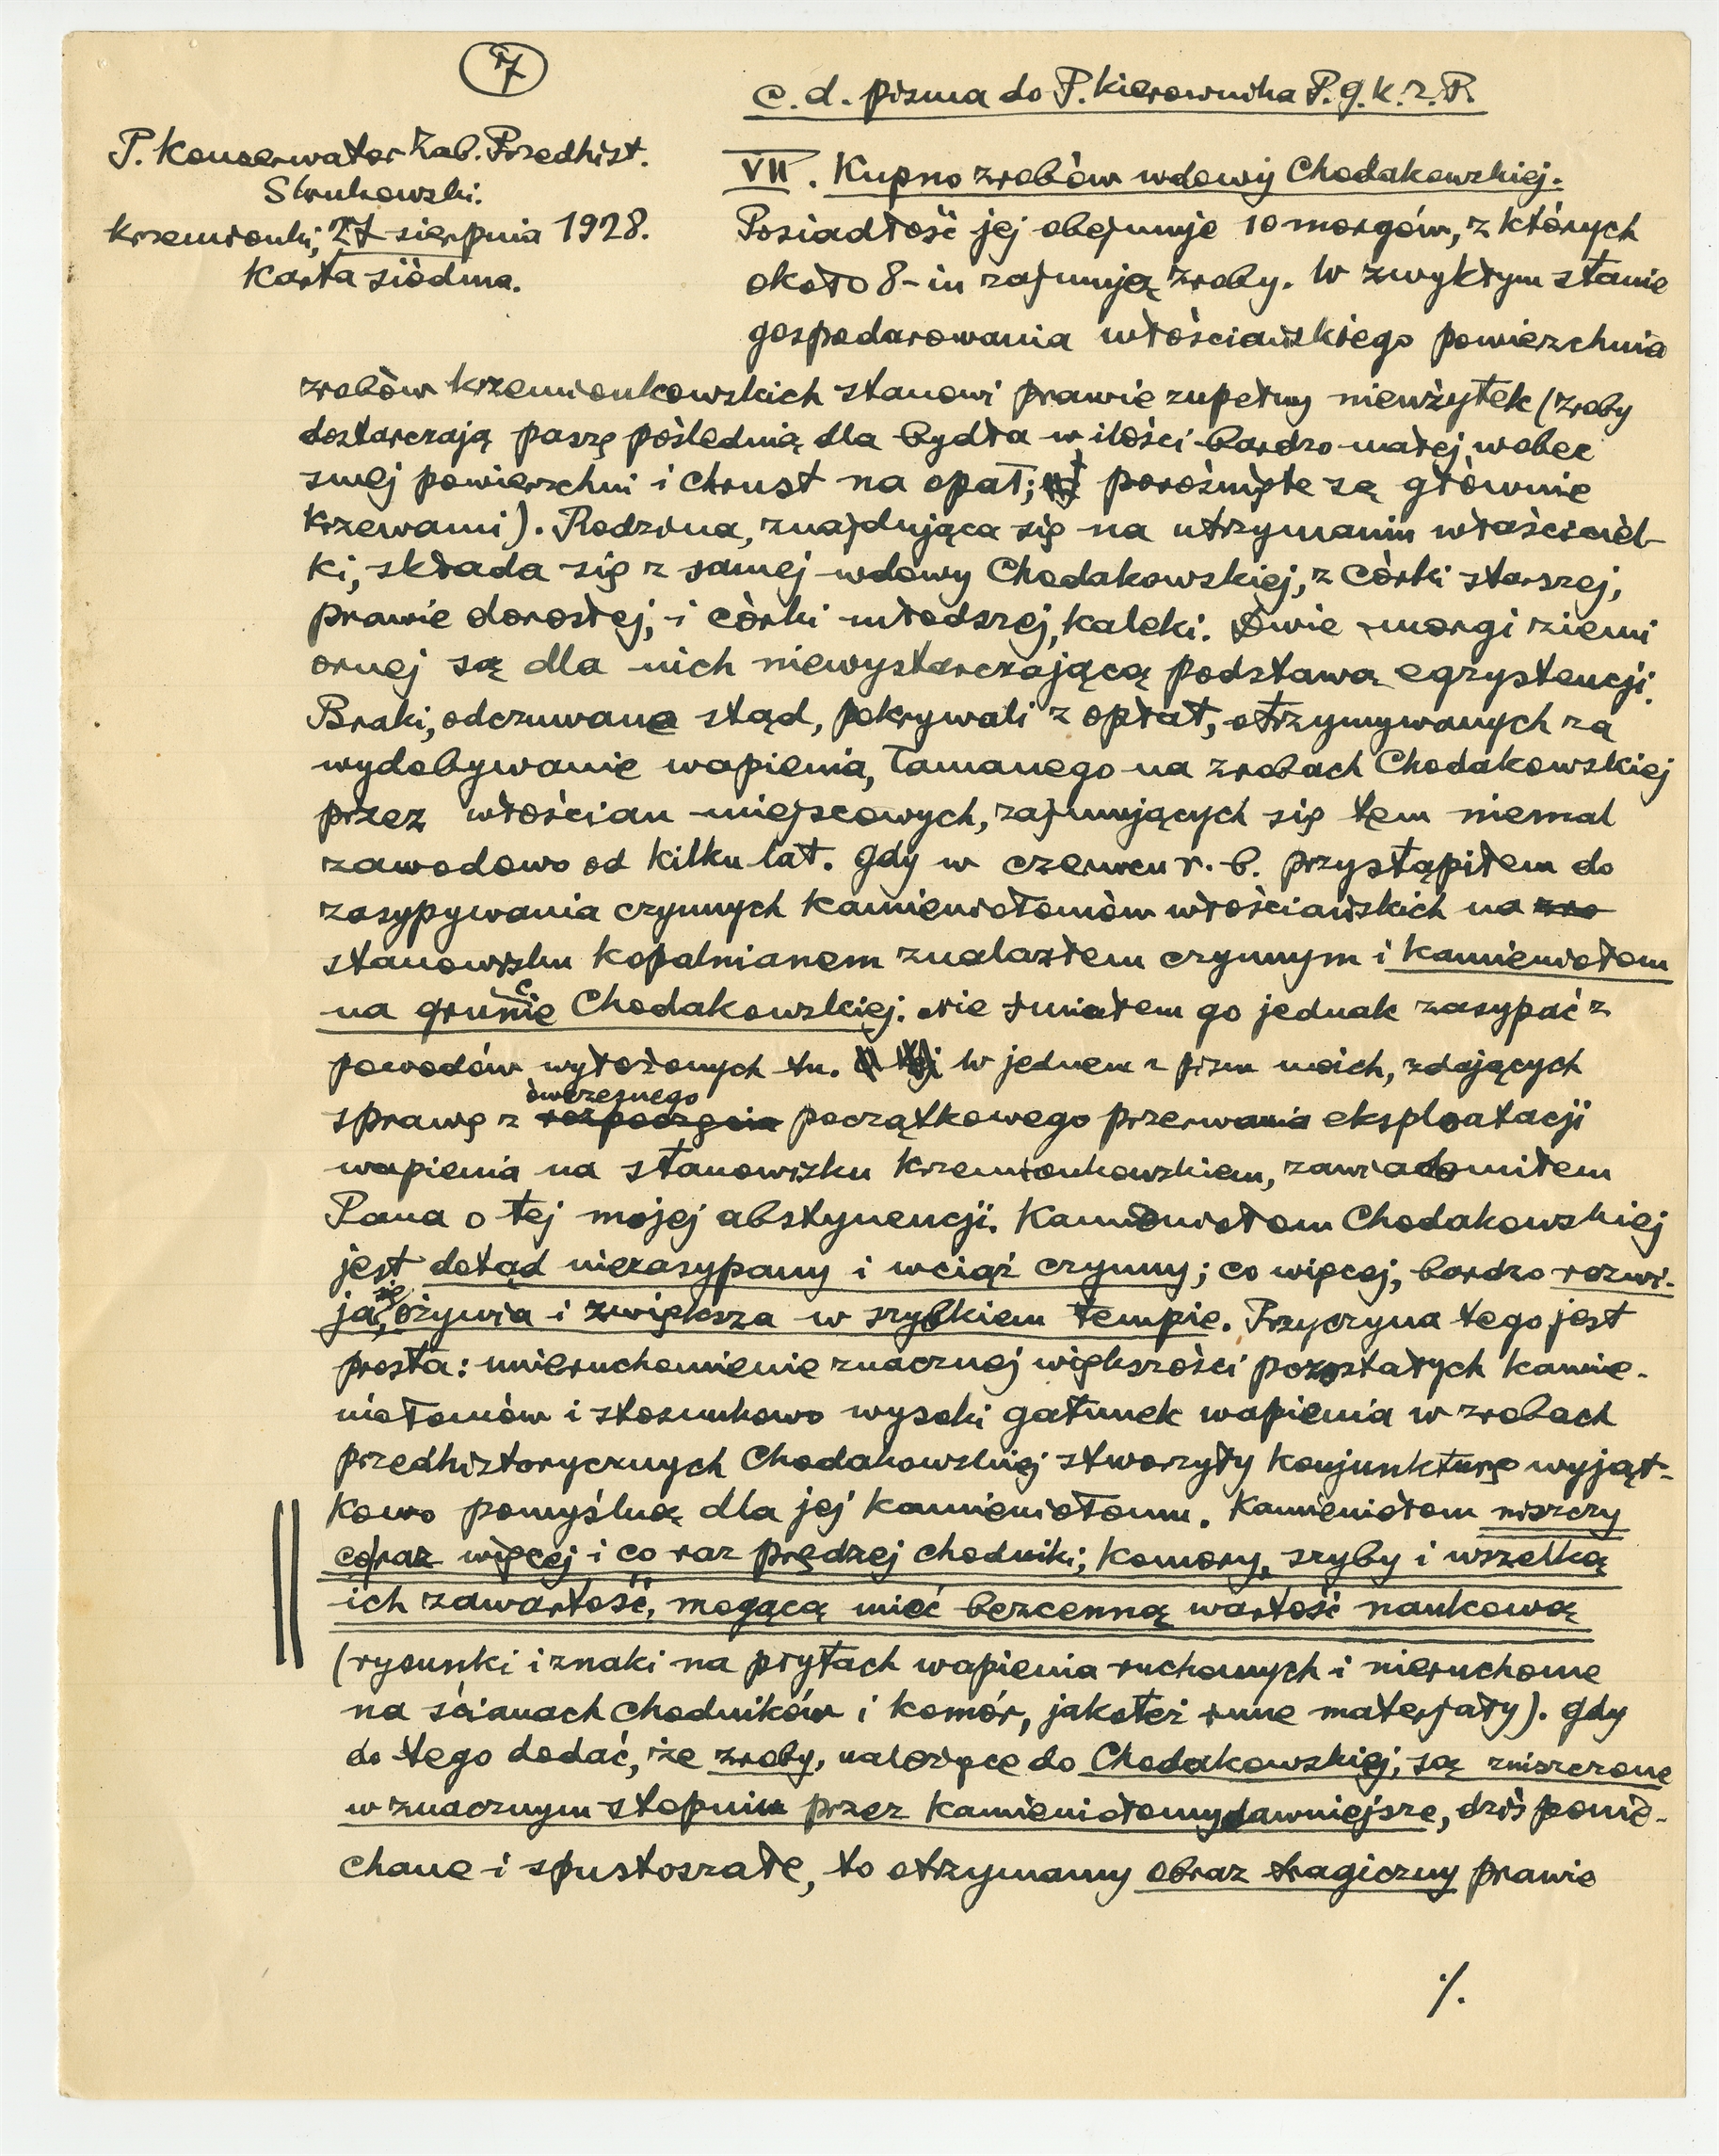 7
c. d. pisma do P. Kierownika P. G. K. Z. P.
P. Konserwator Zab. Przedhist.
Krukowski.
Krzemionki, 27 sierpnia 1928.
Karta siódma.
VII. Kupno zrobów wdowy Chodakowskiej.
Posiadłość jej obejmuje 10 morgów, z których
około 8-iu zajmują zroby. W zwykłym stanie
gospodarowania włościańskiego powierzchnia
zrobów krzemionkowskich stanowi prawie zupełny nieużytek (zroby
dostarczają paszę poślednią dla bydła w ilości bardzo małej, wobec
swej powierzchni i chrust na opał; porośnięte są głównie
krzewami). Rodzina, znajdująca się na utrzymaniu właściciel-
ki, składa się z samej wdowy Chodakowskiej, z córki starszej,
prawie dorosłej, i córki młodszej, kaleki. Dwie morgi ziemi
ornej są dla nich niewystarczającą podstawą egzystencji.
Braki, odczuwane stąd, pokrywali z opłat, otrzymywanych za
wydobywanie wapienia, łamanego na zrobach Chodakowskiej
przez włościan miejscowych, zajmujących się tem niemal
zawodowo od kilku lat. Gdy w czerwcu r. b. przystąpiłem do
zasypywania czynnych kamieniołomów włościańskich na zro
stanowisku kopalnianem znalazłem czynnym i kamieniołom
na gruncie Chodakowskiej. Nie śmiałem go jednak zasypać z
powodów wyłożonych tu. W jednem z pism moich, zdających
sprawę z rozpoczęcia ówczesnego początkowego przerwania eksploatacji
wapienia na stanowisku krzemionkowskiem, zawiadomiłem
Pana o tej mojej abstynencji. Kamieniołom Chodakowskiej
jest dotąd niezasypany i wciąż czynny; co więcej, bardzo rozwi-
ja się, ożywia i zwiększa w szybkiem tempie. Przyczyna tego jest
prosta: unieruchomienie znacznej większości pozostałych kamie-
niołomów i stosunkowo wysoki gatunek wapienia w zrobach
przedhistorycznych Chodakowskiej stworzyły konjunkturę wyjąt-
kowo pomyślną dla jej kamieniołomu. Kamieniołom niszczy
coraz więcej i co raz prędzej chodniki, komory, szyby i wszelką
ich zawartość, mogącą mieć bezcenną wartość naukową
(rysunki i znaki na płytach wapienia ruchomych i nieruchome
na ścianach chodników i komór, jakoteż inne materjały). Gdy
do tego dodać, że zroby, należące do Chodakowskiej, są zniszczone
w znacznym stopniu przez kamieniołomy dawniejsze, dziś ponie-
chane i spustoszałe, to otrzymamy obraz tragiczny prawie
./.